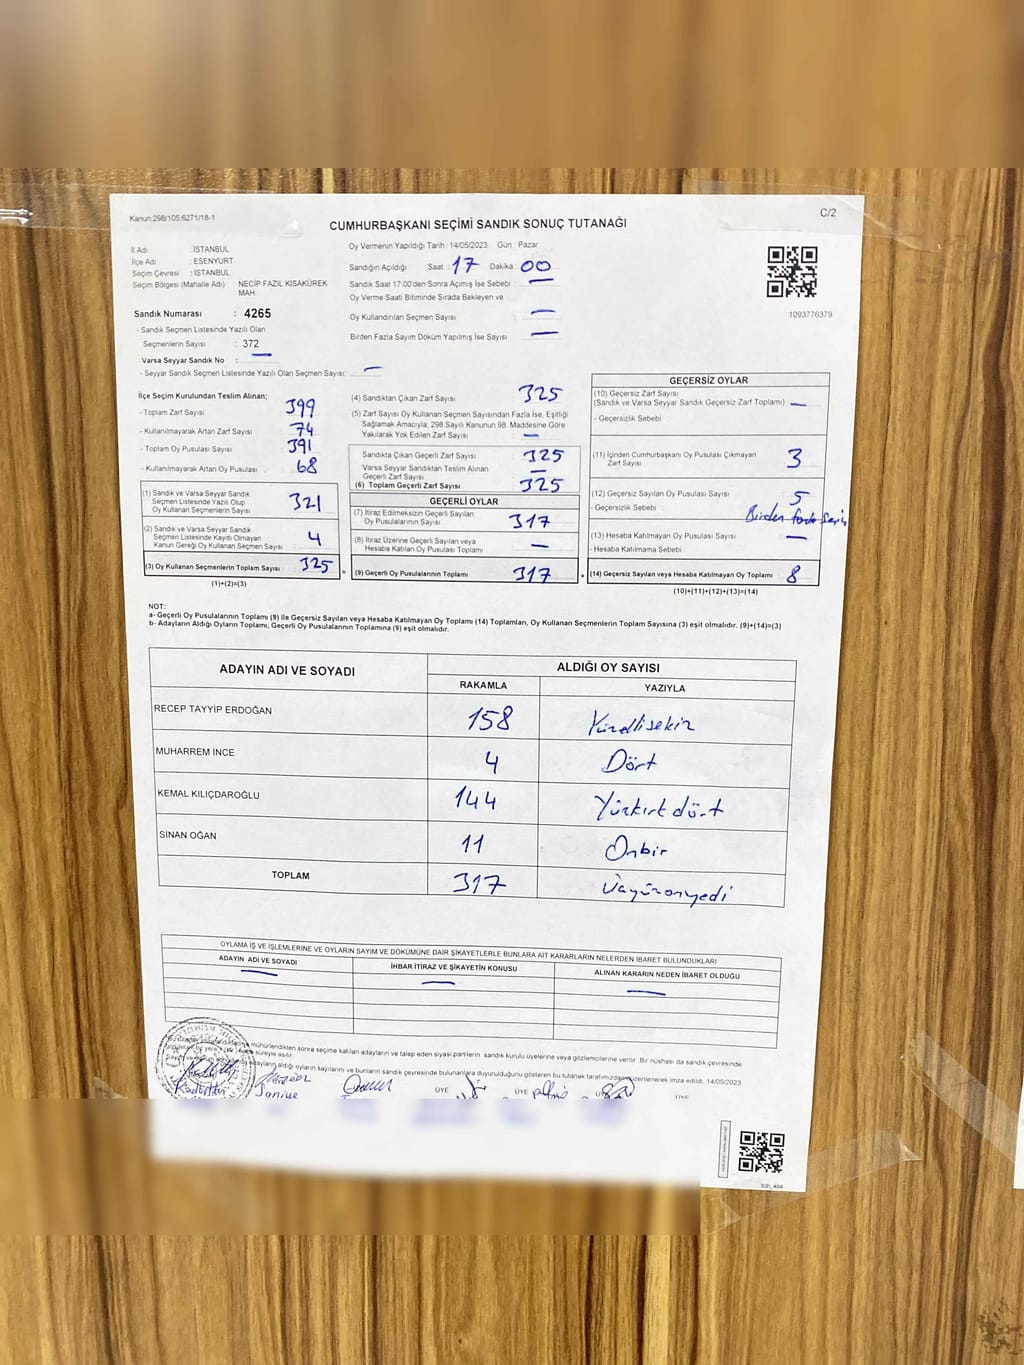 Kanun:298/105;6271/18-1
C/2
CUMHURBAŞKANI SEÇİMİ SANDIK SONUÇ TUTANAĞI
İl Adı : İSTANBUL
İlçe Adı : ESENYURT
Seçim Çevresi : İSTANBUL
Seçim Bölgesi (Mahalle Adı) : NECİP FAZIL KISAKÜREK
MAH.
Sandık Numarası : 4265
- Sandık Seçmen Listesinde Yazılı Olan
Seçmenlerin Sayısı : 372
Varsa Seyyar Sandık No : —
- Seyyar Sandık Seçmen Listesinde Yazılı Olan Seçmen Sayısı: —
Oy Vermenin Yapıldığı Tarih : 14/05/2023 Gün : Pazar
Sandığın Açıldığı Saat : 17 Dakika : 00
Sandık Saat 17:00'den Sonra Açılmış İse Sebebi : —
Oy Verme Saati Bitiminde Sırada Bekleyen ve
Oy Kullandırılan Seçmen Sayısı : —
Birden Fazla Sayım Döküm Yapılmış İse Sayısı : —
1093776379
İlçe Seçim Kurulundan Teslim Alınan;
- Toplam Zarf Sayısı : 399
- Kullanılmayarak Artan Zarf Sayısı : 74
- Toplam Oy Pusulası Sayısı : 391
- Kullanılmayarak Artan Oy Pusulası : 68
(1) Sandık ve Varsa Seyyar Sandık
Seçmen Listesinde Yazılı Olup
Oy Kullanan Seçmenlerin Sayısı : 321
(2) Sandık ve Varsa Seyyar Sandık
Seçmen Listesinde Kayıtlı Olmayan
Kanun Gereği Oy Kullanan Seçmen Sayısı : 4
(3) Oy Kullanan Seçmenlerin Toplam Sayısı : 325
(1)+(2)=(3)
(4) Sandıktan Çıkan Zarf Sayısı : 325
(5) Zarf Sayısı Oy Kullanan Seçmen Sayısından Fazla İse, Eşitliği
Sağlamak Amacıyla; 298 Sayılı Kanunun 98. Maddesine Göre
Yakılarak Yok Edilen Zarf Sayısı : —
Sandıkta Çıkan Geçerli Zarf Sayısı : 325
Varsa Seyyar Sandıktan Teslim Alınan
Geçerli Zarf Sayısı : —
(6) Toplam Geçerli Zarf Sayısı : 325
GEÇERLİ OYLAR
(7) İtiraz Edilmeksizin Geçerli Sayılan
Oy Pusulalarının Sayısı : 317
(8) İtiraz Üzerine Geçerli Sayılan veya
Hesaba Katılan Oy Pusulası Toplamı : —
= (9) Geçerli Oy Pusulalarının Toplamı : 317 +
GEÇERSİZ OYLAR
(10) Geçersiz Zarf Sayısı
(Sandık ve Varsa Seyyar Sandık Geçersiz Zarf Toplamı) : —
- Geçersizlik Sebebi :
(11) İçinden Cumhurbaşkanı Oy Pusulası Çıkmayan
Zarf Sayısı : 3
(12) Geçersiz Sayılan Oy Pusulası Sayısı : 5
- Geçersizlik Sebebi : Birden fazla seçim
(13) Hesaba Katılmayan Oy Pusulası Sayısı : —
- Hesaba Katılmama Sebebi :
(14) Geçersiz Sayılan veya Hesaba Katılmayan Oy Toplamı : 8
(10)+(11)+(12)+(13)=(14)
NOT:
a- Geçerli Oy Pusulalarının Toplamı (9) ile Geçersiz Sayılan veya Hesaba Katılmayan Oy Toplamı (14) Toplamları, Oy Kullanan Seçmenlerin Toplam Sayısına (3) eşit olmalıdır. (9)+(14)=(3)
b- Adayların Aldığı Oyların Toplamı, Geçerli Oy Pusulalarının Toplamına (9) eşit olmalıdır.
ADAYIN ADI VE SOYADI ALDIĞI OY SAYISI
RAKAMLA YAZIYLA
RECEP TAYYİP ERDOĞAN 158 Yüzellisekiz
MUHARREM İNCE 4 Dört
KEMAL KILIÇDAROĞLU 144 Yüzkırkdört
SİNAN OĞAN 11 Onbir
TOPLAM 317 Üçyüzonyedi
OYLAMA İŞ VE İŞLEMLERİNE VE OYLARIN SAYIM VE DÖKÜMÜNE DAİR ŞİKAYETLERLE BUNLARA AİT KARARLARIN NELERDEN İBARET BULUNDUKLARI
ADAYIN ADI VE SOYADI İHBAR İTİRAZ VE ŞİKAYETİN KONUSU ALINAN KARARIN NEDEN İBARET OLDUĞU
— — —
mühürlendikten sonra seçime katılan adayların ve talep eden siyasi partilerin sandık kurulu üyelerine veya gözlemcilerine verilir. Bir nüshası da sandık çevresinde
süreyle asılır.
adayların aldığı oyların sayılarını ve bunların sandık çevresinde bulunanlara duyurulduğunu gösteren bu tutanak tarafımızdan düzenlenerek imza edildi. 14/05/2023
ÜYE ÜYE ÜYE ÜYE